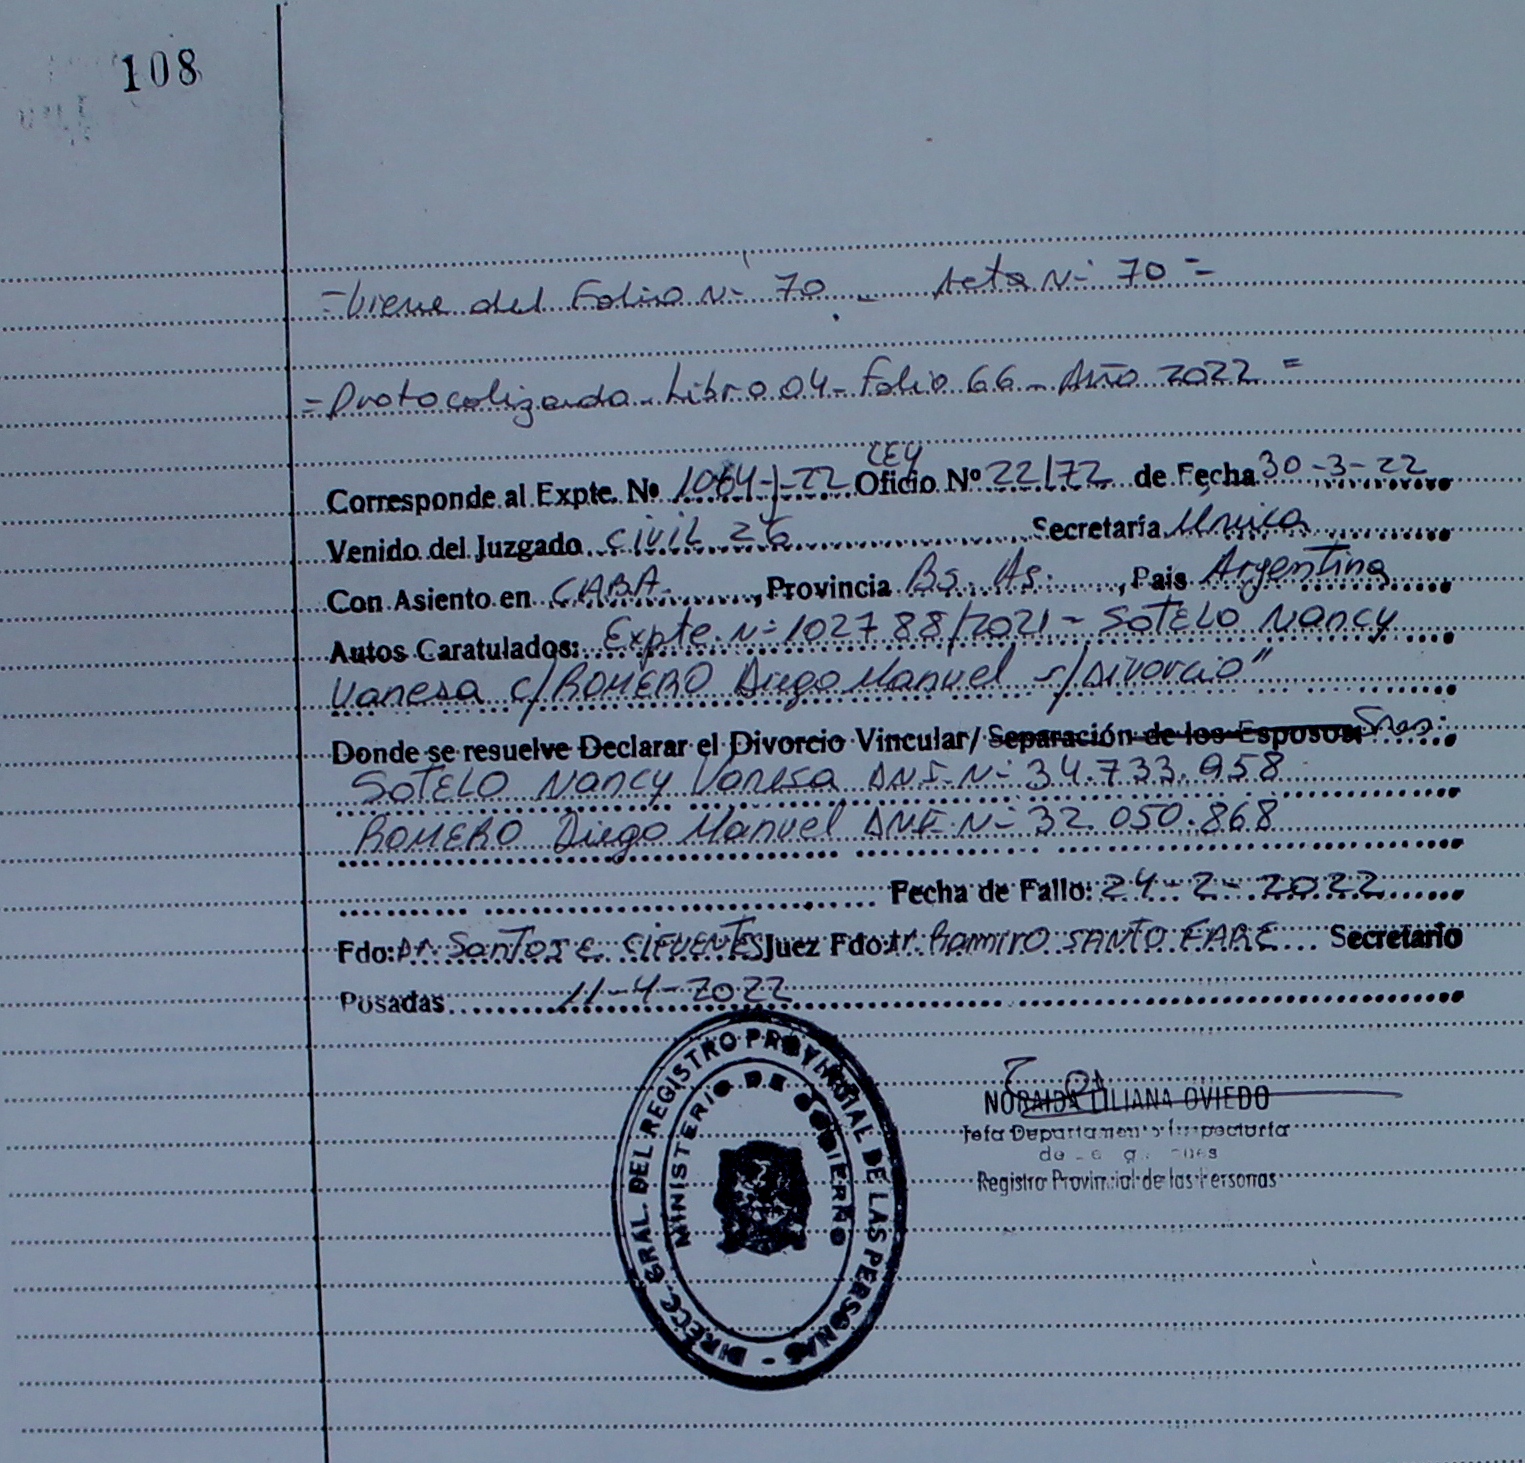 108
=Viene del Folio Nº 70 - Acta Nº 70=
=Protocolizada - Libro 04 - Folio 66 - Año 2022=
LEY
Corresponde al Expte. Nº 1064-J-22 Oficio Nº 22172 de Fecha 30-3-22
Venido del Juzgado CIVIL 26 Secretaría Unica
Con Asiento en CABA, Provincia Bs. As., Pais Argentina
Autos Caratulados: Expte. Nº 102788/2021 - SOTELO Nancy
Vanesa c/ROMERO Diego Manuel s/Divorcio"
Donde se resuelve Declarar el Divorcio Vincular/ Separación de los Esposos: Sres:
SOTELO Nancy Vanesa DNI Nº 34.733.958
ROMERO Diego Manuel DNI Nº 32.050.868
Fecha de Fallo: 24-2-2022
Fdo: Dr. Santos E. CIFUENTES Juez Fdo: Dr. Ramiro SANTO FARE Secretario
Posadas 11-4-2022
DIRECC. GRAL. DEL REGISTRO PROVINCIAL DE LAS PERSONAS -
MINISTERIO DE GOBIERNO
NORAIDA LILIANA OVIEDO
Jefa Departamento Inspectoría
de
Registro Provincial de las Personas